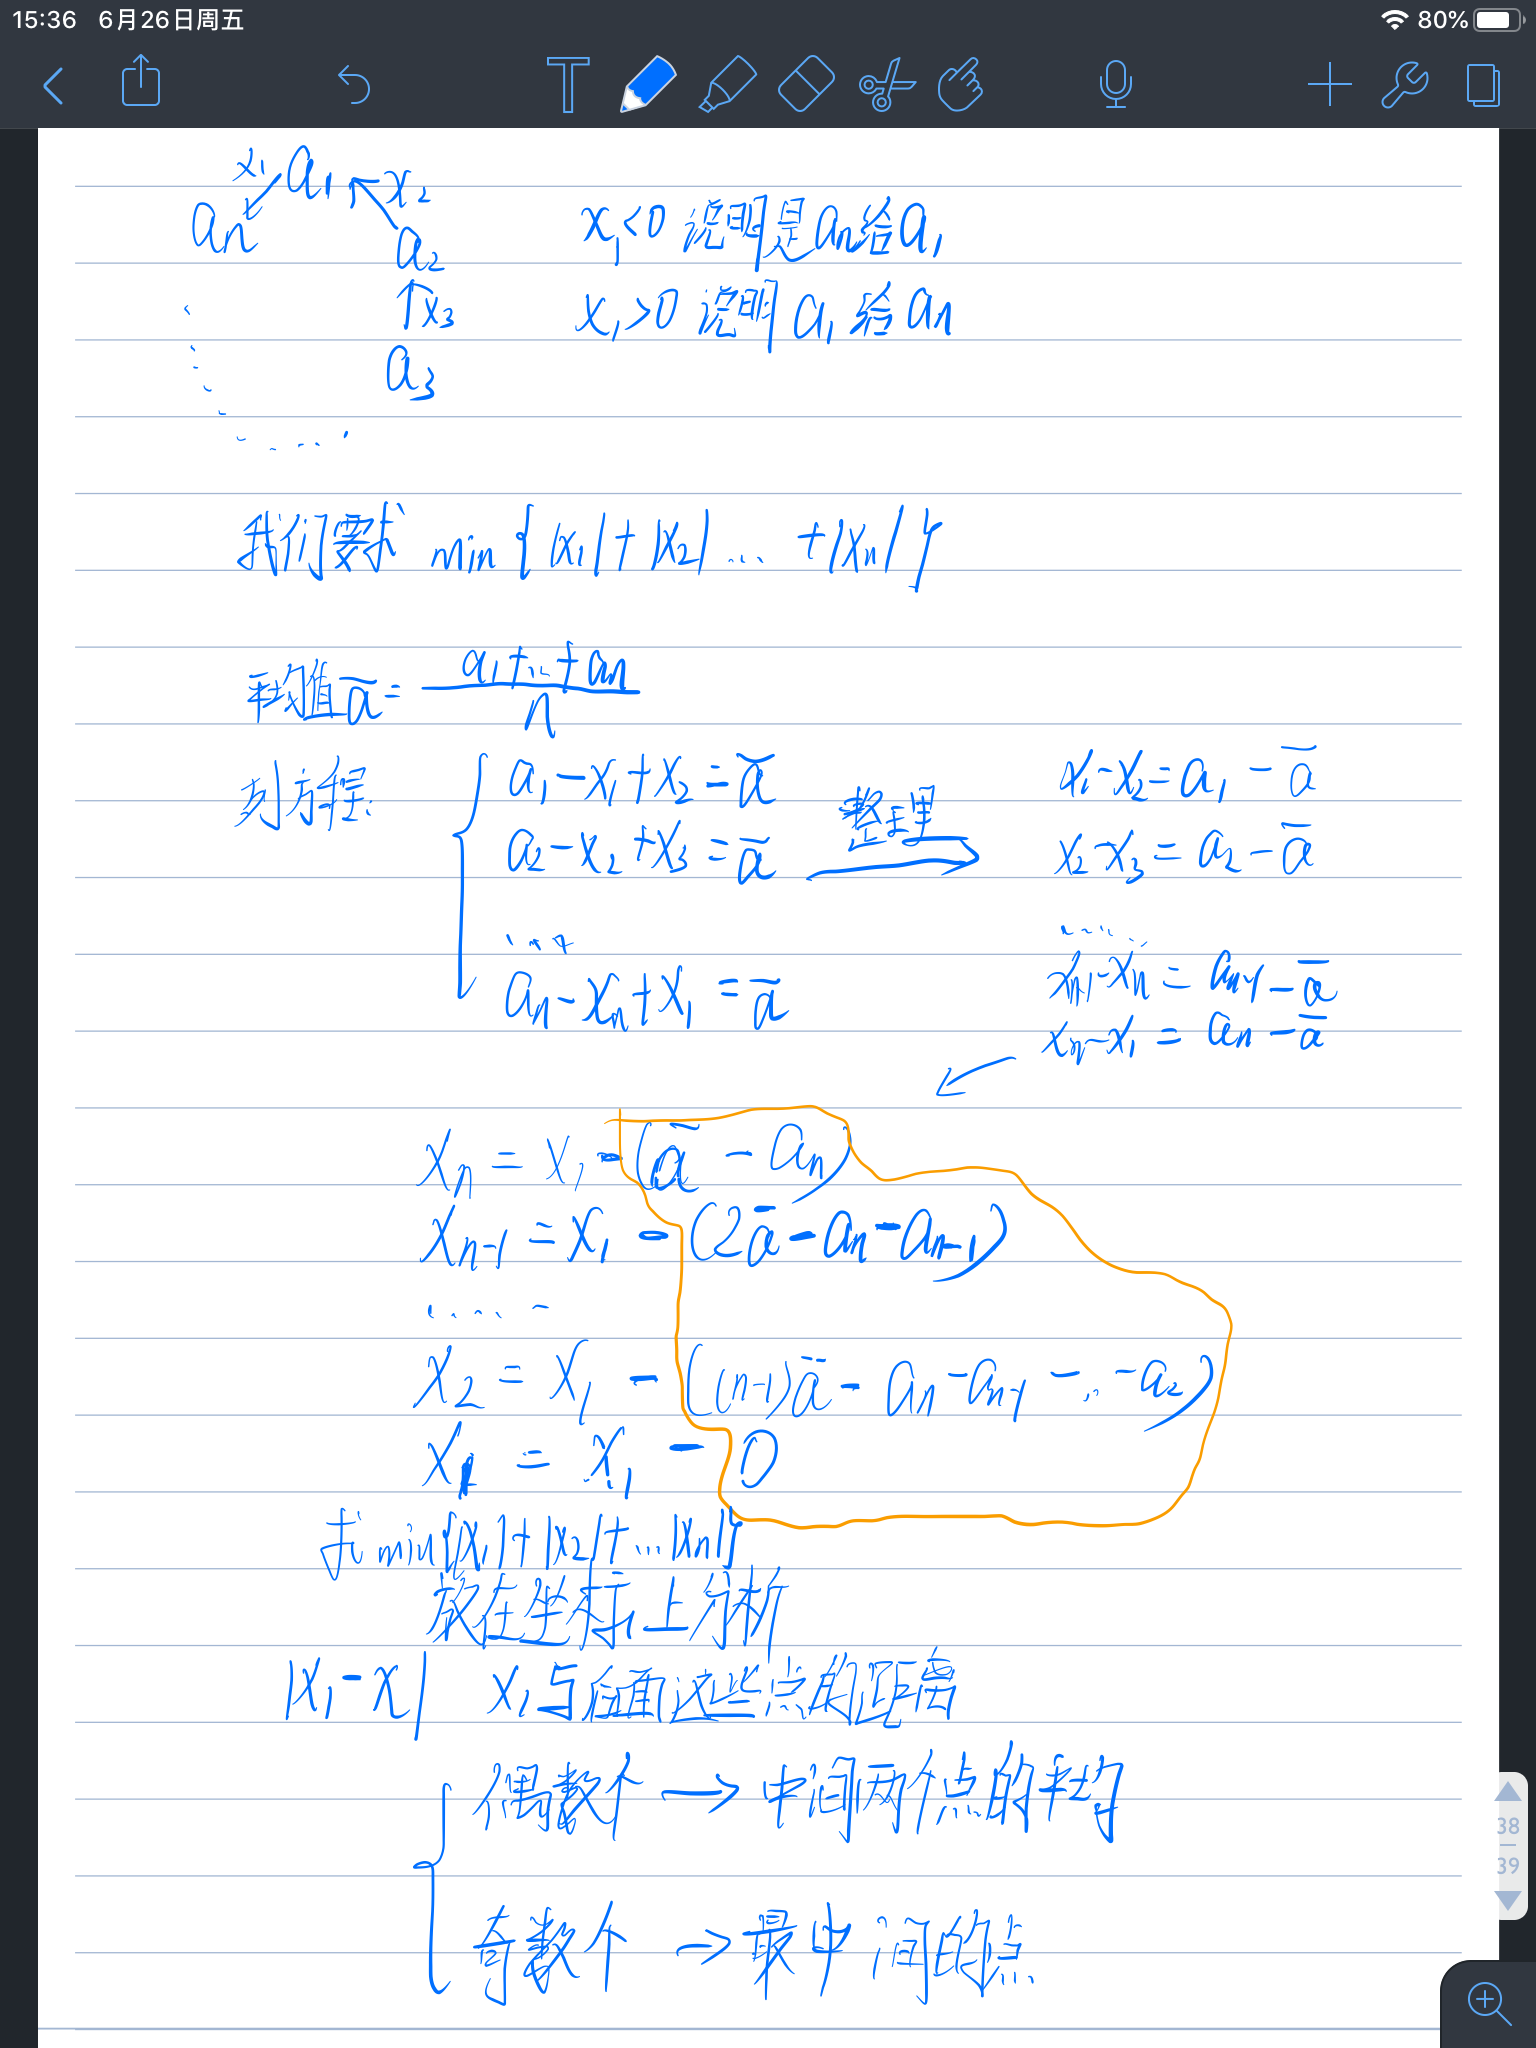 15:36 6月26日周五 80%
T
x₁ a₁ x₂
aₙ
a₂
x₃
a₃
x₁<0 说明是aₙ给a₁
x₁>0 说明a₁给aₙ
我们要求 min{|x₁|+|x₂|... +|xₙ|}
平均值ā = (a₁+...+aₙ)/n
列方程:
a₁-x₁+x₂=ā
a₂-x₂+x₃=ā
....
aₙ-xₙ+x₁=ā
整理
x₁-x₂=a₁-ā
x₂-x₃=a₂-ā
.....
xₙ₋₁-xₙ=aₙ₋₁-ā
xₙ-x₁=aₙ-ā
xₙ=x₁-(ā-aₙ)
xₙ₋₁=x₁-(2ā-aₙ-aₙ₋₁)
.....
x₂=x₁-((n-1)ā-aₙ-aₙ₋₁-...-a₂)
x₁=x₁-0
求min{|x₁|+|x₂|+...|xₙ|}
放在坐标上分析
|x₁-x| x₁与后面这些点的距离
偶数个→中间两个点的平均
奇数个→最中间的点
38
39